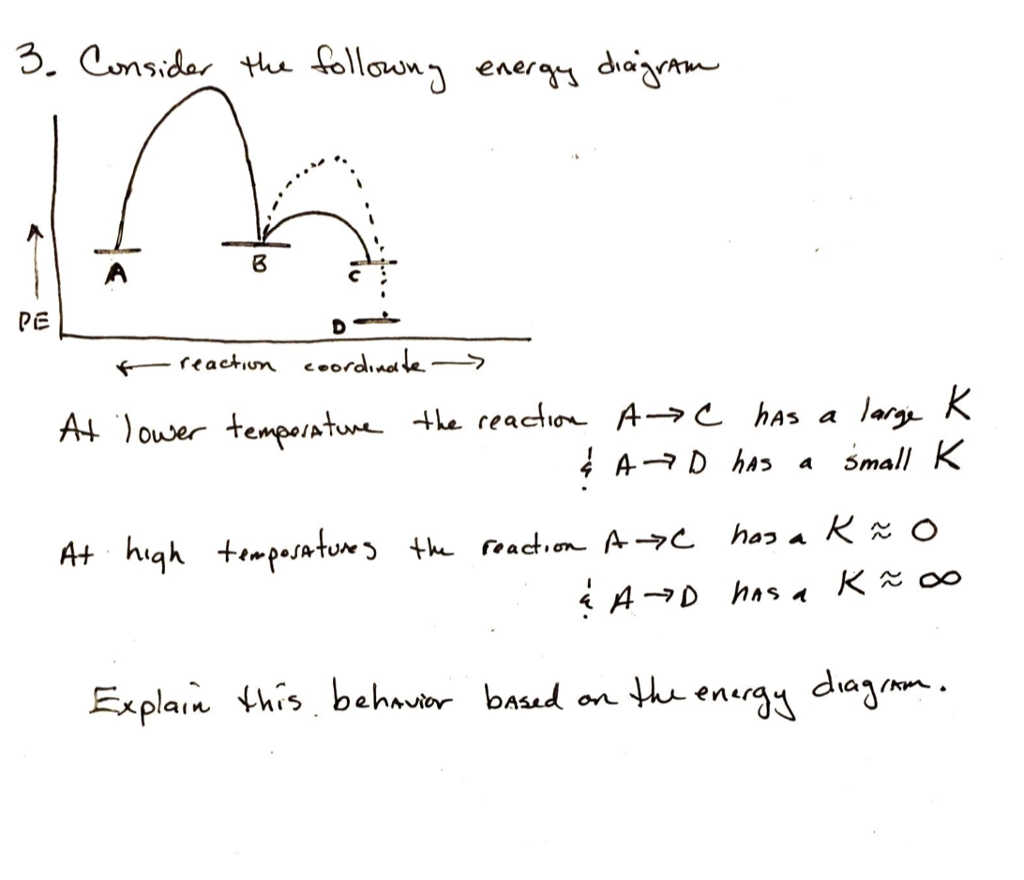 3. Consider the following energy diagram
A
B
C
PE
D
← reaction coordinate →
At lower temperature the reaction A → C has a large K
& A → D has a small K
At high temperatures the reaction A → C has a K ≈ 0
& A → D has a K ≈ ∞
Explain this behavior based on the energy diagram.